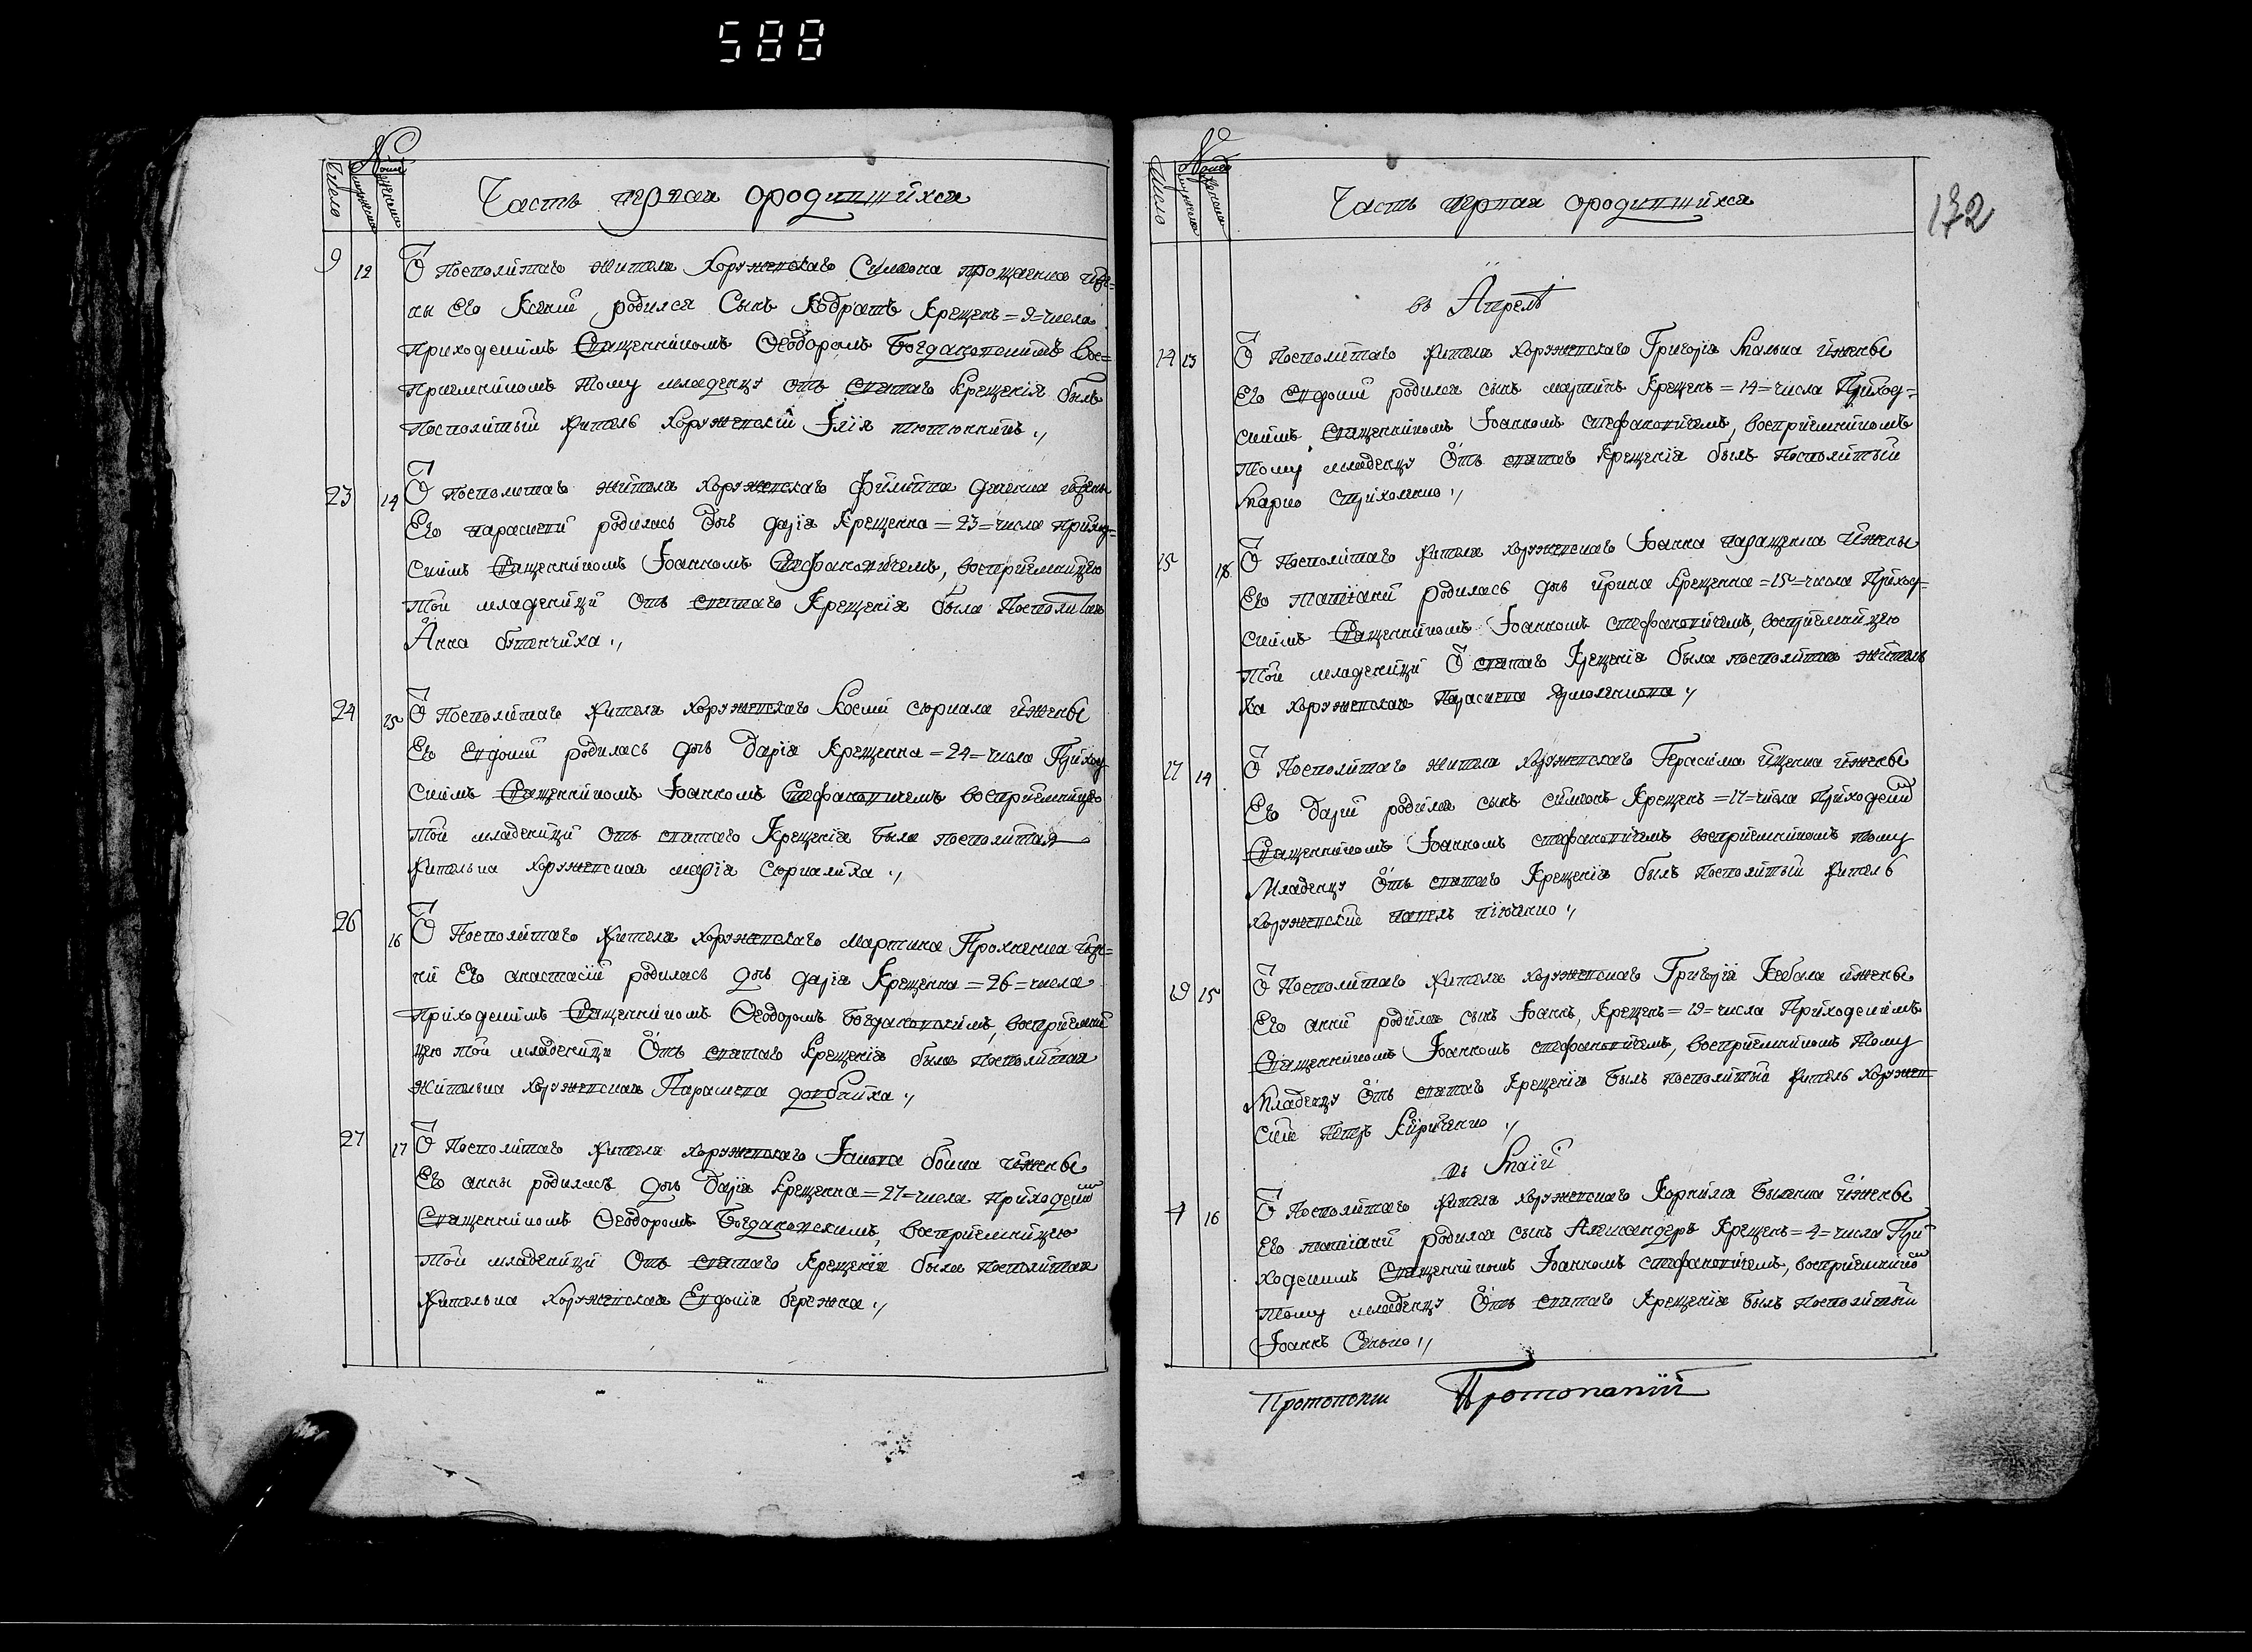 588
№
Число
Часть первая ородившихся
9 12 Ѿ Посполитаго жителя Хоружевскаго Симеона прощенка ижe=
ны Его Ксении родился Сынъ Кодратъ Крещенъ = 9 = числа
Приходскимъ Священникомъ Феодоромъ Богдановскимъ Вос=
Приемникомъ тому младенцу отъ святаго Крещенія былъ
Посполитый житель Хоружевскій Илія
23 14 Ѿ посполитаго жителя Хоружевскаго Филипа ижены
Его параскеви родилась дчь дарія Крещенна = 23 = числа Приход=
скимъ Священникомъ Іоанномъ Стефановичемъ, восприемницею
той младеници отъ святаго Крещенія была Посполитая
Анна
24 15 Ѿ Посполитаго жителя хоружевскаго Косми сюркала ижены
Его Евдокии родилась дчь Дарія Крещенна = 24 = числа Приход
скимъ Священникомъ Іоанномъ Стефановичемъ восприемницею
той младеници отъ святаго Крещенія была посполитая
жителька хоружевская марія Сюркалиха
26 16 Ѿ Посполитаго жителя хоружевскаго мартина Прохненка иже=
ни Его анастасіи родилась дчь дарія Крещенна = 26 = числа
Приходскимъ Священникомъ Феодоромъ Богдановскимъ, восприемни
цею той младеници Отъ святаго Крещенія была посполитая
жителька хоружевская Параскева довбниха
27 17 Ѿ Посполитаго жителя хоружевскаго Іакова бойка ижены
Его анны родилась дчь Дарія Крещенна = 27 = числа приходским
Священникомъ Феодоромъ Богдановскимъ, восприемницею
той младеници Отъ святаго Крещенія была посполитая
жителька хоружевская Евдокія бережна
№
Число
Часть первая ородившихся
172
въ Апрелѣ
14 13 Ѿ Посполитаго жителя хоружевскаго Григорія ижены
Его Евдокии родился сынъ мартинъ Крещенъ = 14 = числа Приход=
скимъ Священникомъ Іоанномъ стефановичемъ, восприемникомъ
тому младенцу Отъ святаго Крещенія былъ Посполитый
Марко
15 18 Ѿ Посполитаго жителя хоружевскаго Іоанна паращенка ижены
Его татіани родилась дчь ирина Крещенна = 15 = числа Приход=
скимъ Священникомъ Іоанномъ стефановичемъ, восприемницею
той младеници Ѿ святаго Крещенія была посполитая житель
ка хоружевская Параскева
17 14 Ѿ Посполитаго жителя хоружевскаго Герасима ищенка ижены
Его дарии родился сынъ симеонъ Крещенъ = 17 = числа Приходским
Священникомъ Іоанномъ стефановичемъ восприемникомъ тому
Младенцу Отъ святаго Крещенія былъ Посполитый житель
хоружевский павелъ
19 15 Ѿ Посполитаго жителя хоружевскаго Григорїя Кебала ижены
Его анни родился сынъ Іоаннъ, Крещенъ = 19 = числа Приходскимъ
Священникомъ Іоанномъ стефановичемъ, восприемникомъ тому
Младенцу Отъ святаго Крещенія былъ посполитый житель хоружев
ский петръ Кириченко
въ Маїи
4 16 Ѿ Посполитаго жителя хоружевскаго Корнила ижены
Его татіани родился сынъ Александеръ Крещенъ = 4 = числа При
ходскимъ Священникомъ Іоанномъ стефановичемъ, восприемником
тому младенцу Отъ святаго Крещенія былъ посполитый
Іоаннъ Сенько
Протопопъ